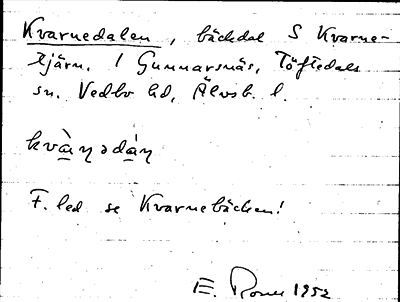 Kvarnedalen, bäckdal S Kvarne-
tjärn. / Gunnarsnäs, Töftedals
sn. Vedbo hd, Älvsb. l.
kvàṇədáṇ
F. led se Kvarnebäcken!
E. 1952